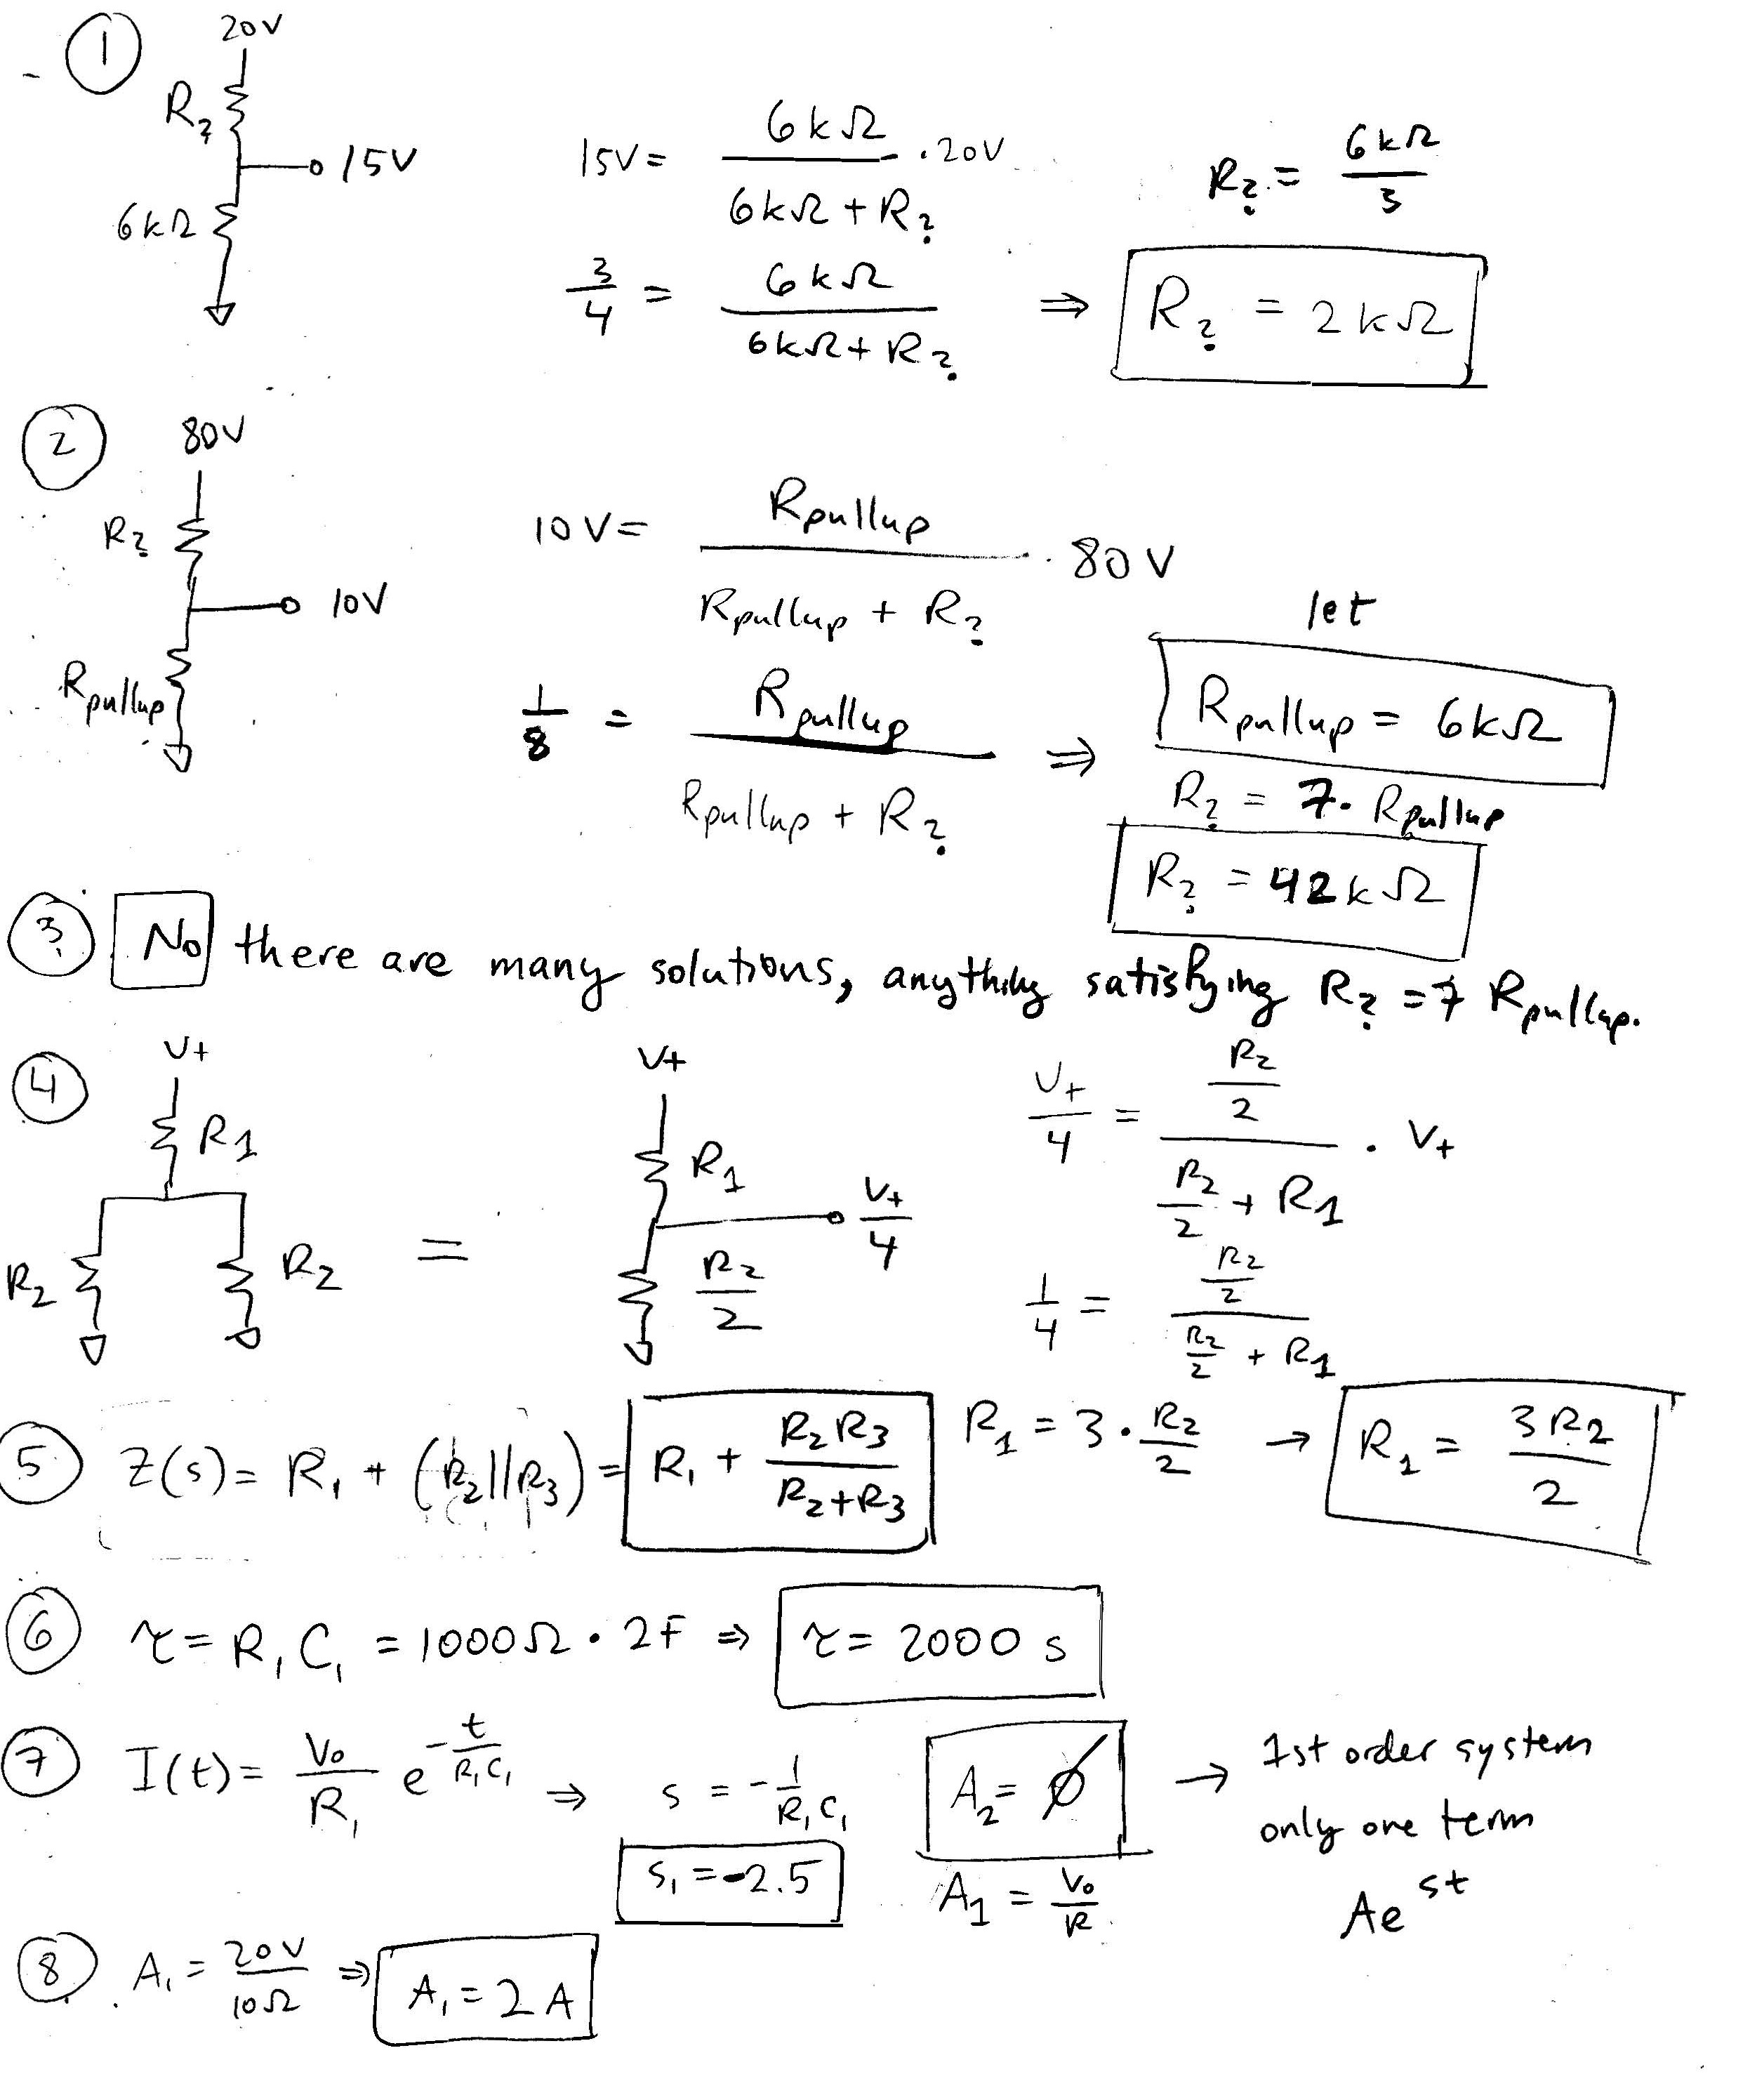 ①
20V
R?
15V
6kΩ
15V = 6kΩ / (6kΩ + R?) · 20V
3/4 = 6kΩ / (6kΩ + R?) ⇒
R? = 6kΩ / 3
R? = 2kΩ
②
80V
R?
10V
Rpullup
10V = Rpullup / (Rpullup + R?) · 80V
1/8 = Rpullup / (Rpullup + R?) ⇒
let
Rpullup = 6kΩ
R? = 7 · Rpullup
R? = 42kΩ
③ No there are many solutions, anything satisfying R? = 7 Rpullup.
④
V+
R1
R2 R2
=
V+
R1
V+/4
R2/2
V+/4 = (R2/2) / (R2/2 + R1) · V+
1/4 = (R2/2) / (R2/2 + R1)
R1 = 3 · R2/2 → R1 = 3R2/2
⑤ Z(s) = R1 + (R2||R3) = R1 + R2R3 / (R2+R3)
⑥ τ = R1C1 = 1000Ω · 2F ⇒ τ = 2000 s
⑦ I(t) = V0/R1 e^(-t/R1C1) ⇒ s = -1/R1C1
s1 = -2.5
A2 = Ø
A1 = V0/R
→ 1st order system
only one term
Ae^st
⑧ A1 = 20V/10Ω ⇒ A1 = 2A